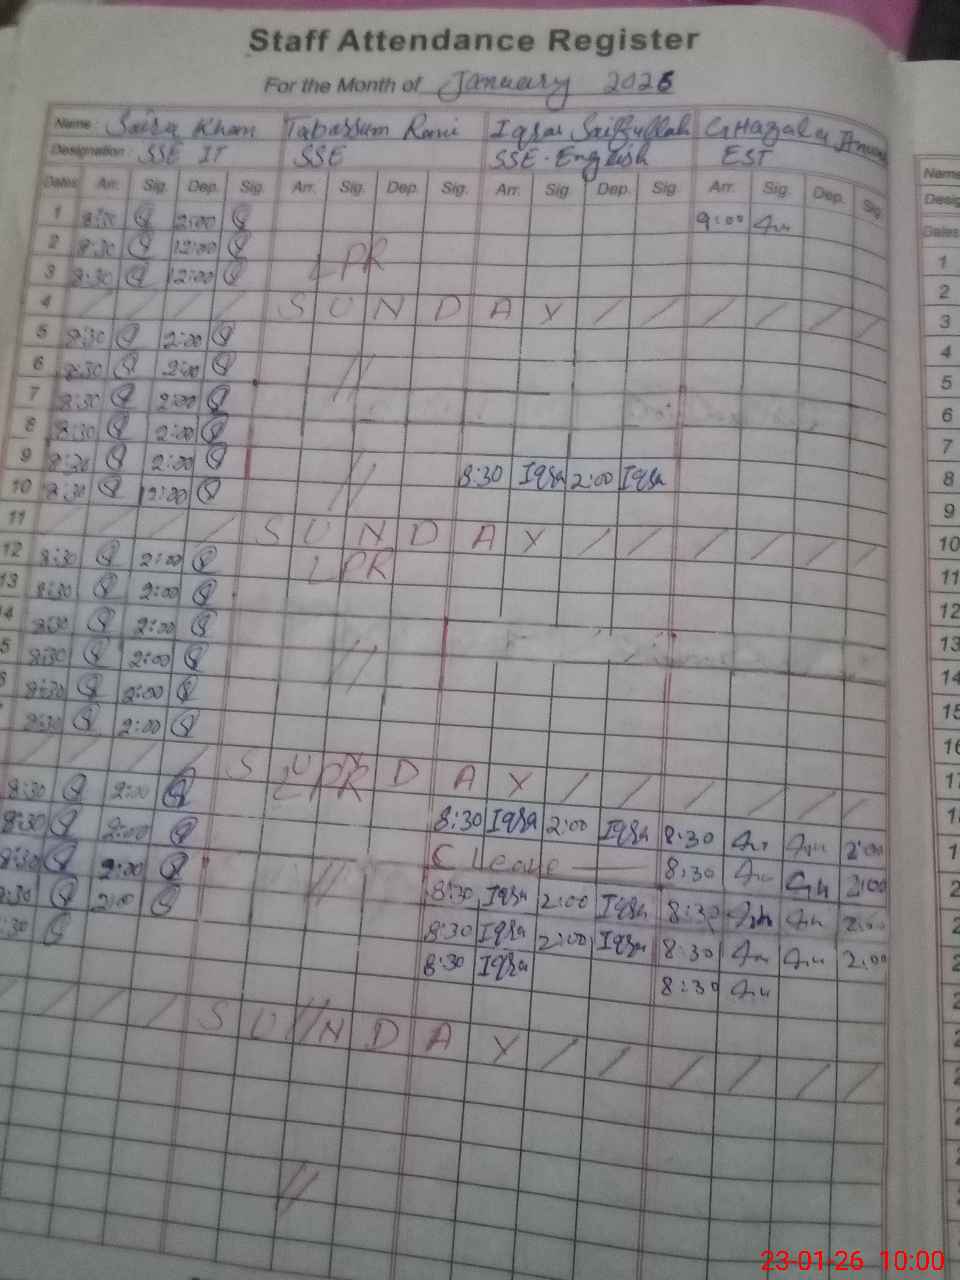 Staff Attendance Register
For the Month of January 2026
Name: Saira Khan Tabassum Rani Iqra Saifullah GHazala
Designation: SSE IT SSE SSE-English EST
Dates Arr. Sig. Dep. Sig. Arr. Sig. Dep. Sig. Arr. Sig Dep. Sig Arr. Sig. Dep. Sig
1 8:30 2:00 9:00
2 8:30 12:00 LPR
3 8:30 12:00
4 / / / / S U N D A Y / / / / / /
5 8:30 2:00
6 8:30 2:00 //
7 8:30 2:00
8 8:30 2:00
9 8:30 2:00 // 8:30 Iqra 2:00 Iqra
10 8:30 2:00
11 / / / / S U N D A Y / / / / / /
12 8:30 2:00 LPR
13 8:30 2:00
4 8:30 2:00
5 8:30 2:00 //
8:30 2:00
8:30 2:00
/ / / / S U N D A Y / / / / / /
8:30 2:00 LPR
8:30 2:00 8:30 Iqra 2:00 Iqra 8:30 2:00
8:30 2:00 C Leave 8:30 2:00
8:30 2:00 // 8:30 Iqra 2:00 Iqra 8:30 2:00
:30 8:30 Iqra 2:00 Iqra 8:30 2:00
8:30 Iqra 8:30
/ / / / S U N D A Y / / / / / /
//
//
Name
Desig
Dates
1
2
3
4
5
6
7
8
9
10
11
12
13
14
15
16
17
23-01-26 10:00